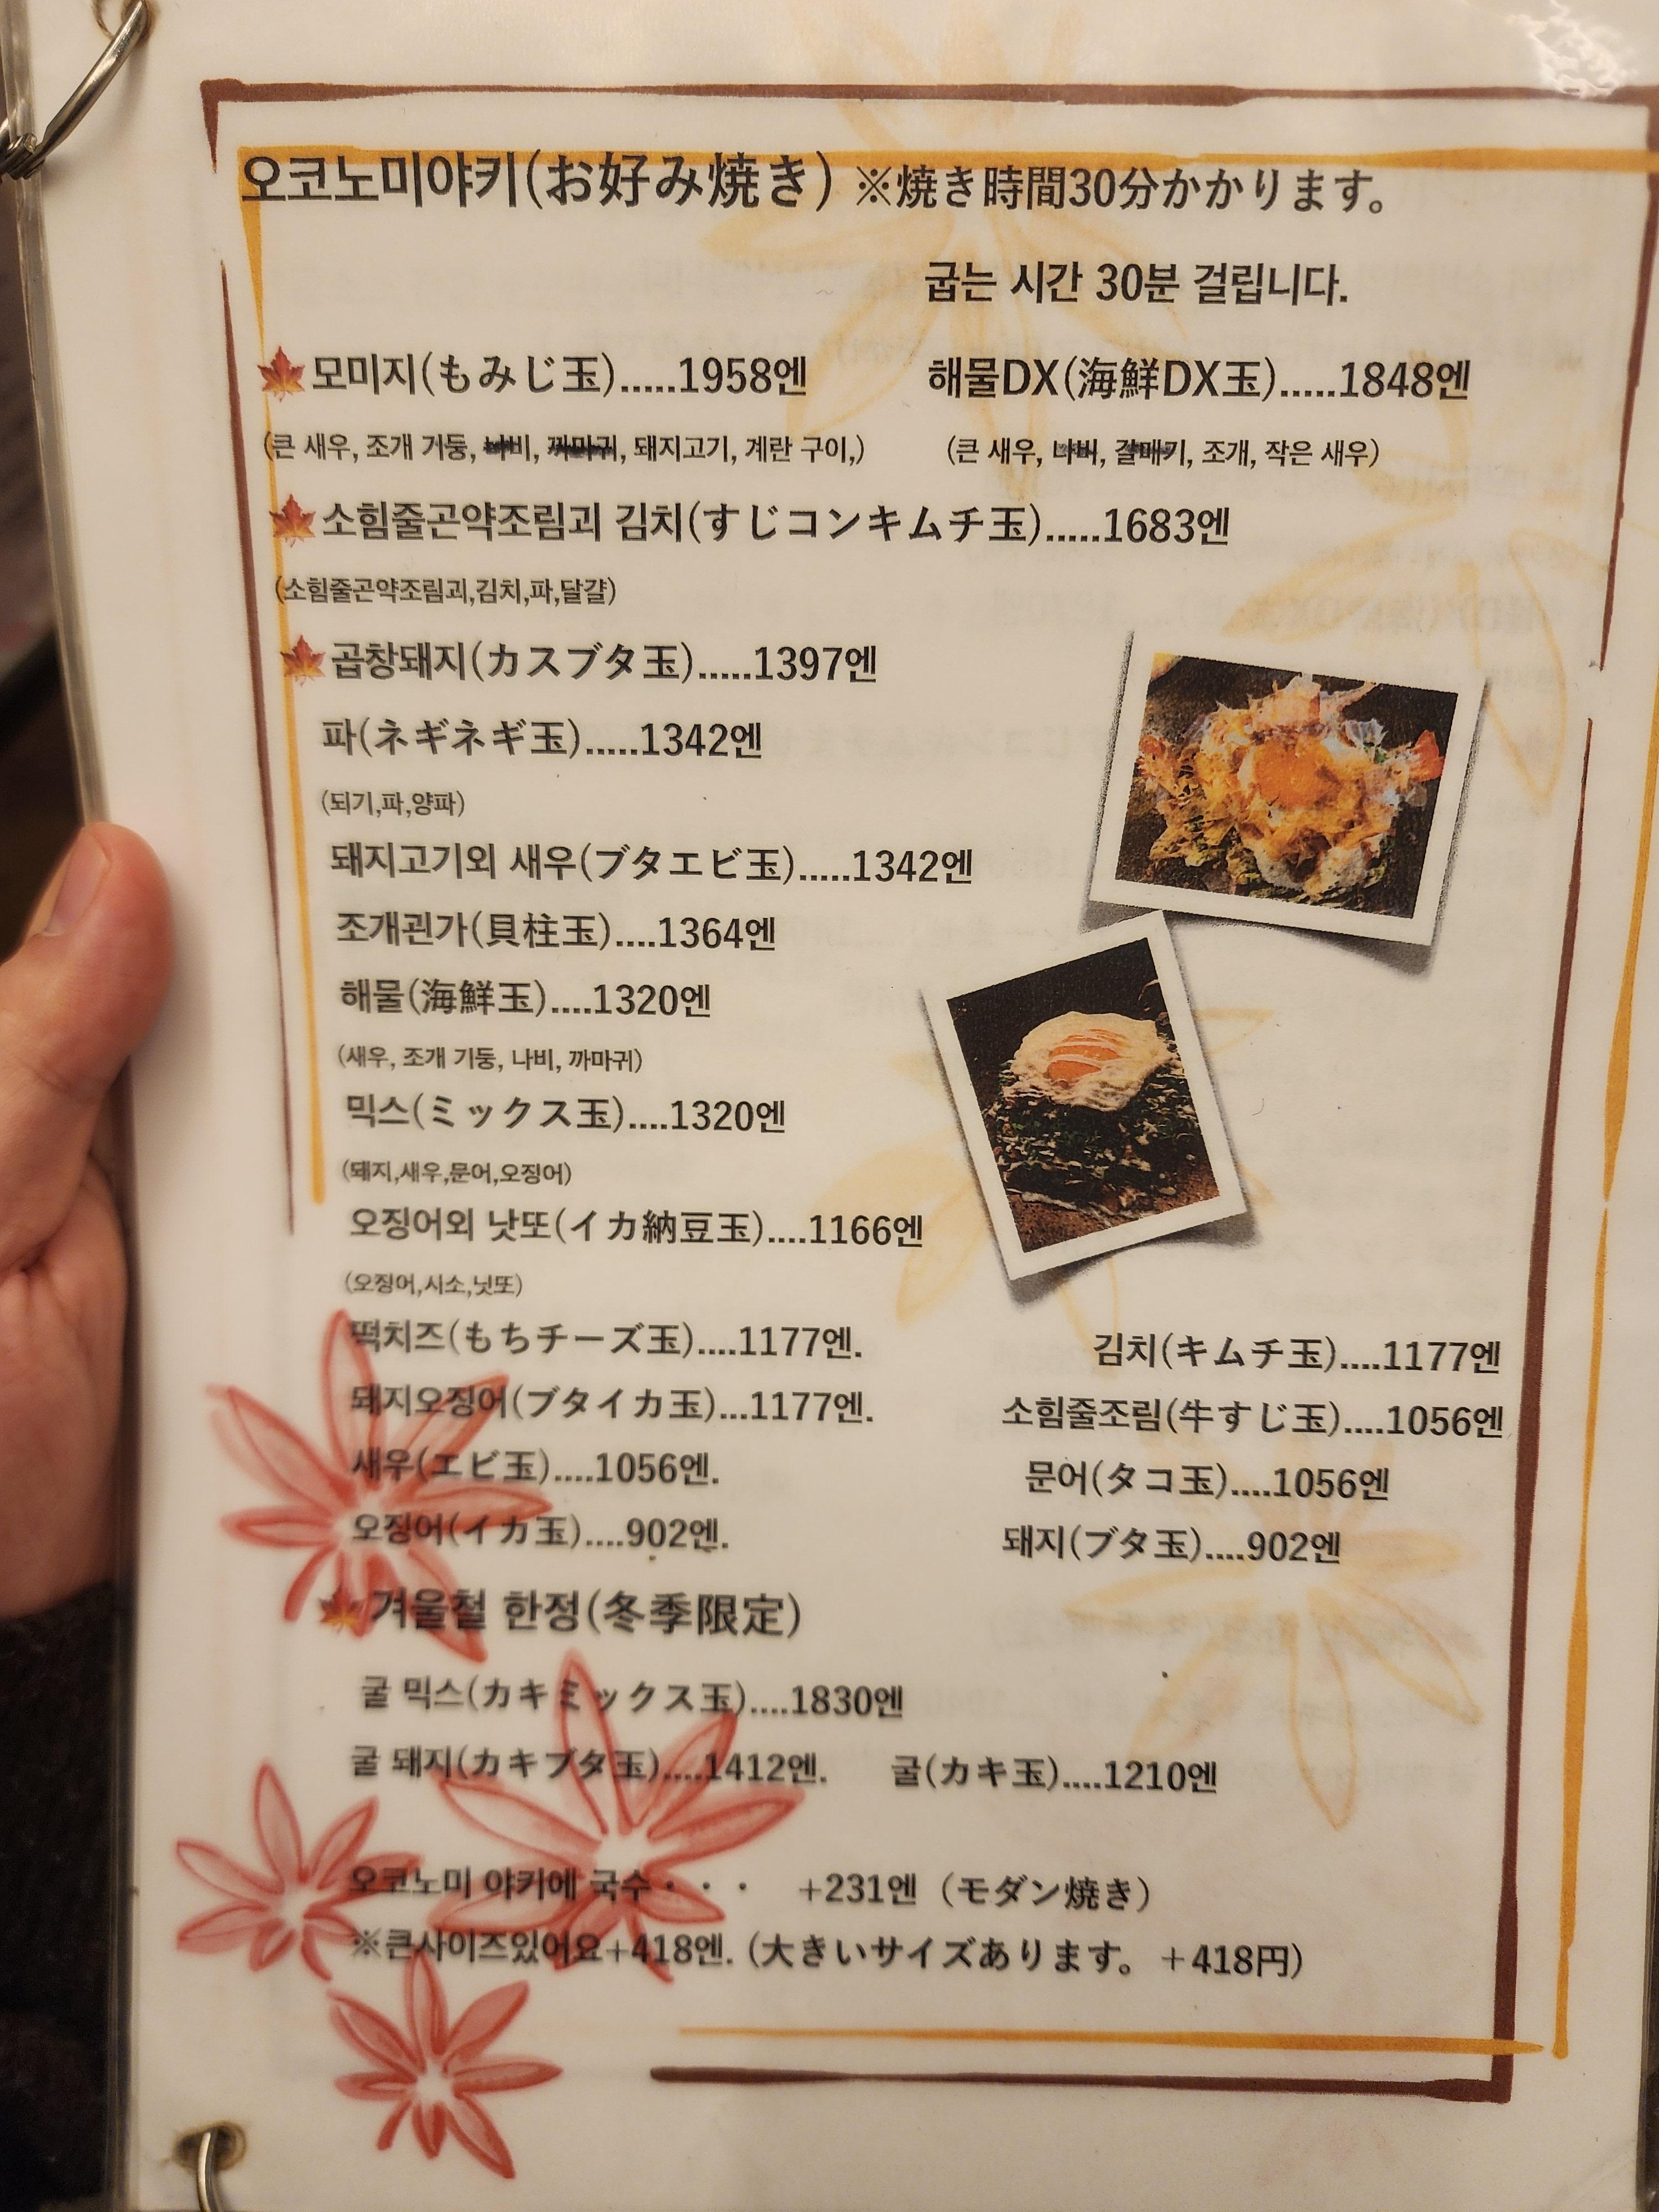 오코노미야키(お好み焼き) ※焼き時間30分かかります。
굽는 시간 30분 걸립니다.
모미지(もみじ玉).....1958엔
해물DX(海鮮DX玉).....1848엔
(큰 새우, 조개 기둥, 나비, 까마귀, 돼지고기, 계란 구이,)
(큰 새우, 나비, 갈매기, 조개, 작은 새우)
소힘줄곤약조림괴 김치(すじコンキムチ玉).....1683엔
(소힘줄곤약조림괴,김치,파,달걀)
곱창돼지(カスブタ玉).....1397엔
파(ネギネギ玉).....1342엔
(되기,파,양파)
돼지고기외 새우(ブタエビ玉).....1342엔
조개괸가(貝柱玉)....1364엔
해물(海鮮玉)....1320엔
(새우, 조개 기둥, 나비, 까마귀)
믹스(ミックス玉)....1320엔
(돼지,새우,문어,오징어)
오징어외 낫또(イカ納豆玉)....1166엔
(오징어,시소,닛또)
떡치즈(もちチーズ玉)....1177엔.
김치(キムチ玉)....1177엔
돼지오징어(ブタイカ玉)...1177엔.
소힘줄조림(牛すじ玉)....1056엔
새우(エビ玉)....1056엔.
문어(タコ玉)....1056엔
오징어(イカ玉)....902엔.
돼지(ブタ玉)....902엔
겨울철 한정(冬季限定)
굴 믹스(カキミックス玉)....1830엔
굴 돼지(カキブタ玉)....1412엔.
굴(カキ玉)....1210엔
오코노미 야키에 국수・・・ +231엔 (モダン焼き)
※큰사이즈있어요+418엔. (大きいサイズあります。+418円)